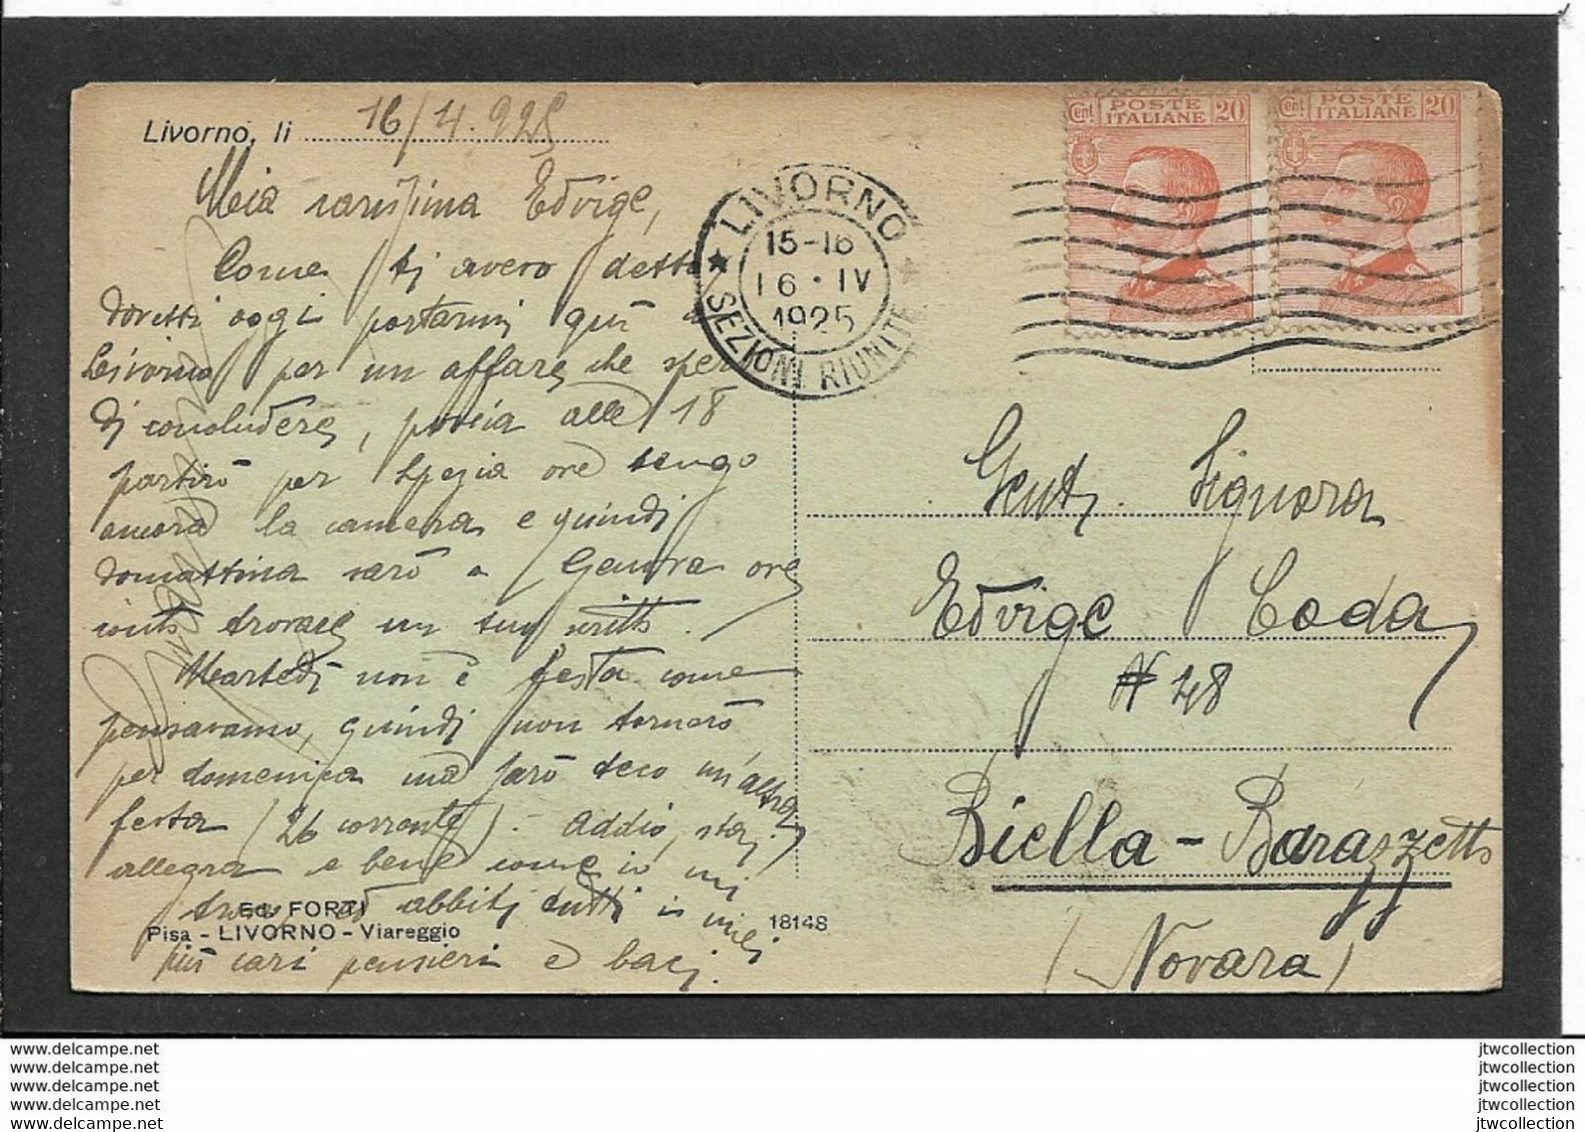 Livorno, li 16/4.925
Mia carissima Edvige,
Come ti avevo detto
dovetti oggi portarmi qui a
Livorno per un affare che spero
di concludere, poscia alle 18
partirò per Spezia ove tengo
ancora la camera e quindi
domattina sarò a Genova ove
conto trovare un tuo scritto.
Martedì non è festa come
pensavamo, quindi non tornerò
per domenica ma farò teco un'altra
festa (26 corrente). Addio, stai
allegra e bene come io mi
trovo, ed abbiti tutti i miei
più cari pensieri e baci.
Ed. FORTI
Pisa - LIVORNO - Viareggio
18148
LIVORNO
15-16
16·IV
1925
SEZIONI RIUNITE
Cent. POSTE ITALIANE 20
Cent. POSTE ITALIANE 20
Gent. Signora
Edvige Coda
N 48
Biella - Barazzetto
(Novara)
www.delcampe.net
www.delcampe.net
www.delcampe.net
www.delcampe.net
www.delcampe.net
jtwcollection
jtwcollection
jtwcollection
jtwcollection
jtwcollection